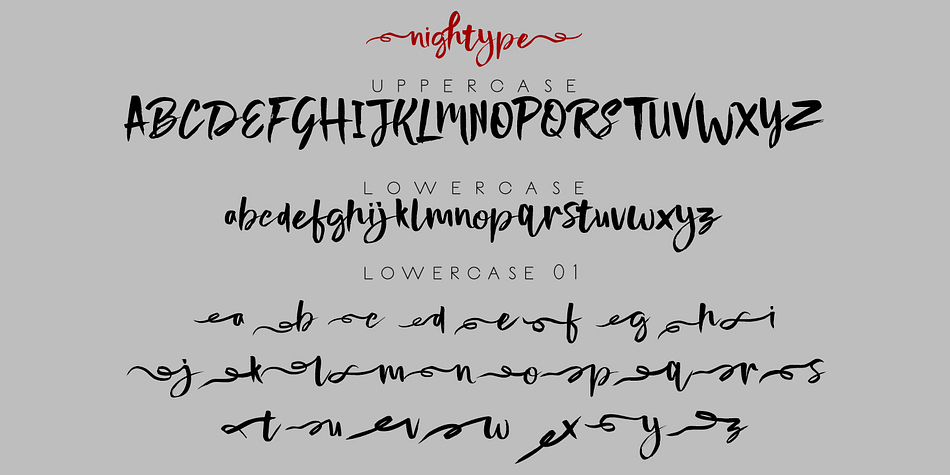 nightype
UPPERCASE
ABCDEFGHIJKLMNOPQRSTUVWXYZ
LOWERCASE
abcdefghijklmnopqrstuvwxyz
LOWERCASE 01
a b c d e f g h i
j k l m n o p q r s
t u v w x y z